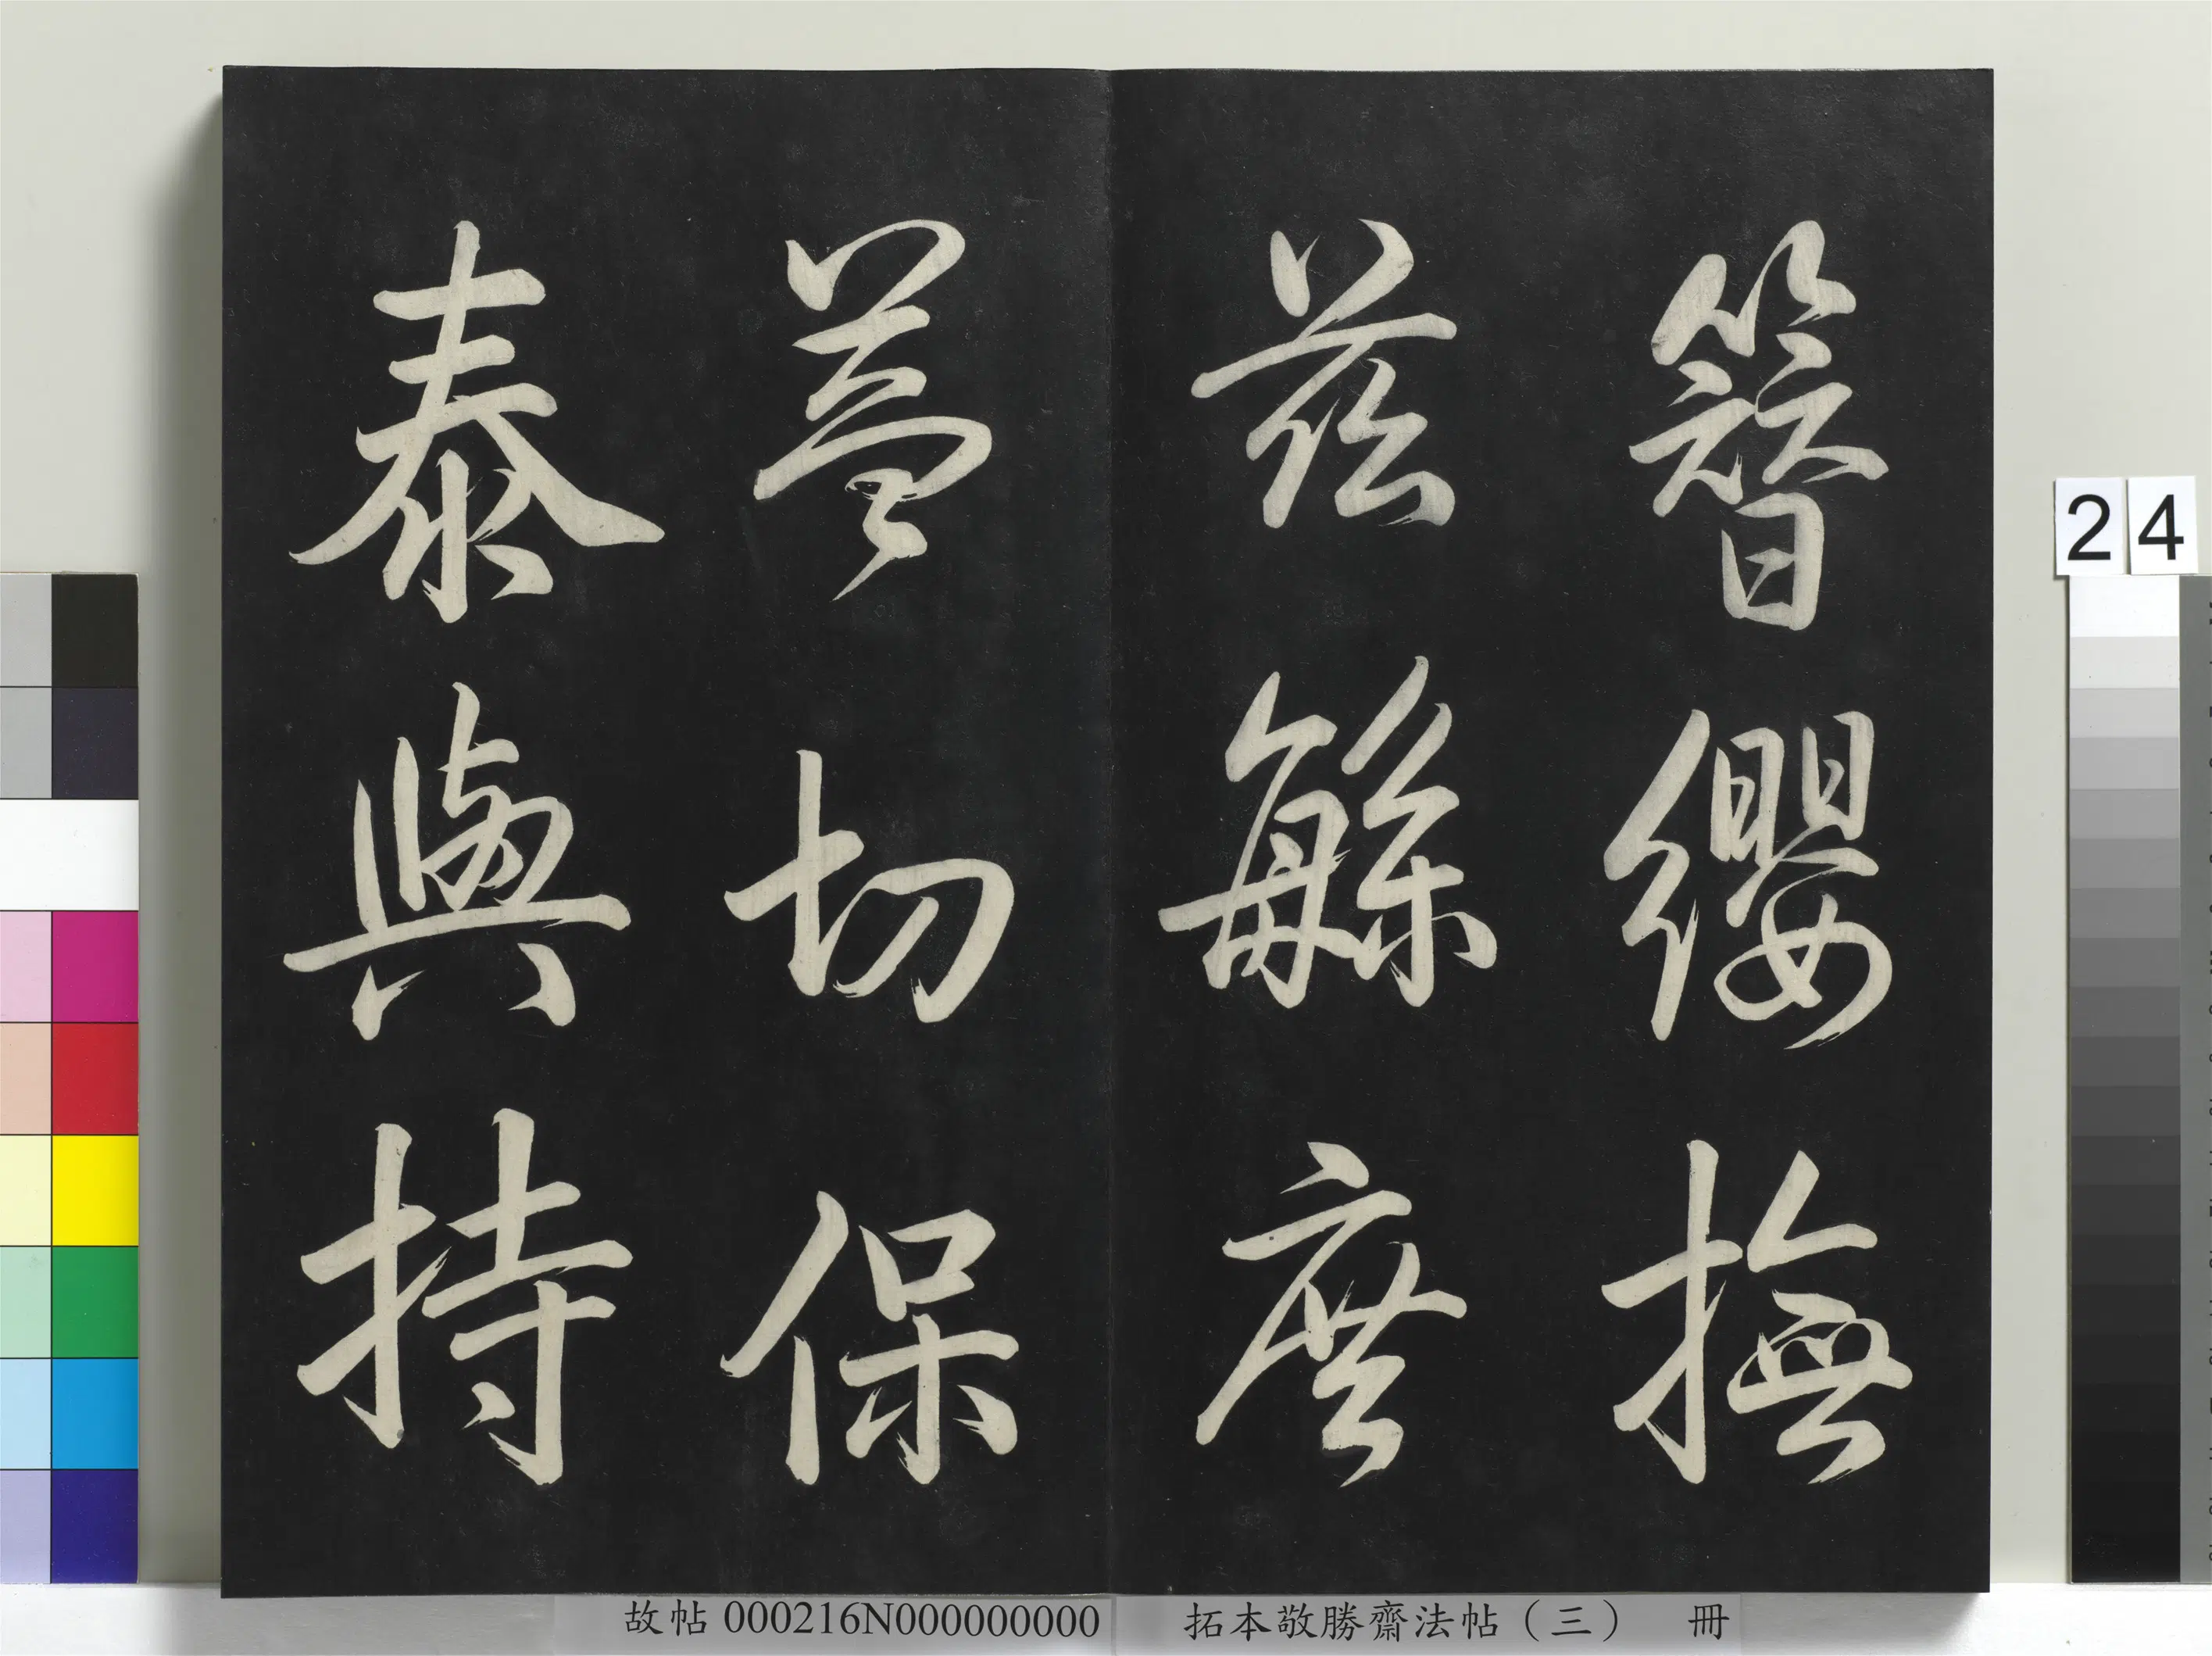 簪纓撫
茲繇庶
益切保
泰與持
24
故帖000216N000000000
拓本敬勝齋法帖（三） 冊